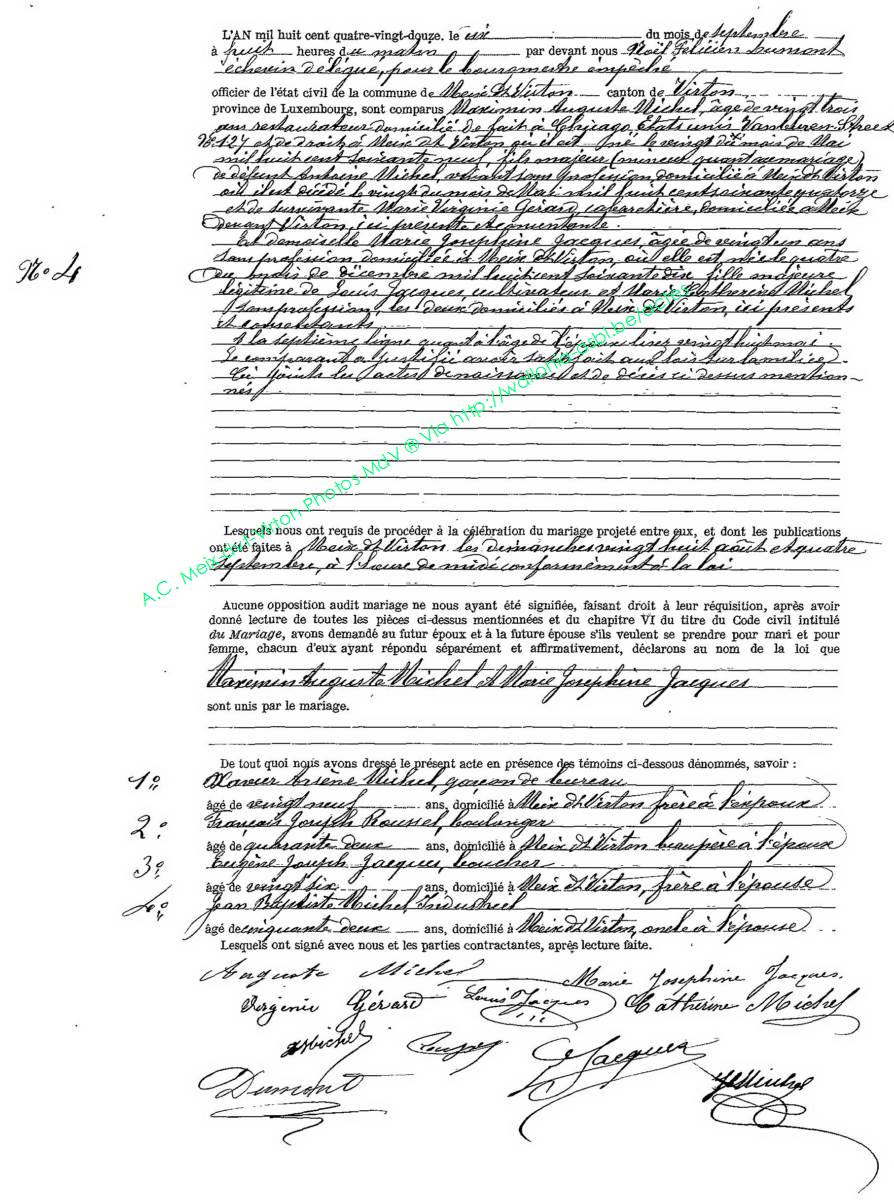 L'AN mil huit cent quatre-vingt-douze, le six du mois de septembre
à huit heures du matin par devant nous Noël Félicien Dumont
échevin délégué, pour le bourgmestre empêché
officier de l'état civil de la commune de Meix Dt Virton canton de Virton
province de Luxembourg, sont comparus Maximin Auguste Michel, âgé de vingt trois
ans restaurateur domicilié de fait à Chicago, Etats unis Vanburen-Street
No 127 et de droit à Meix dt Virton où il est né le vingt du mois de Mai
mil huit cent soixante neuf, fils majeur (mineur quant au mariage)
de défunt Antoine Michel, vivant sans profession domicilié à Meix dt Virton
où il est décédé le vingt du mois de Mai mil huit cent soixante quatorze
et de survivante Marie Virginie Gérard, cabaretière, domiciliée à Meix
devant Virton, ici présente et consentante.
Et demoiselle Marie Josephine Jacques, âgée de vingt un ans
sans profession domiciliée à Meix dt Virton, où elle est née le quatre
du mois de décembre mil huit cent soixante dix, fille majeure
légitime de Louis Jacques, cultivateur et Marie Catherine Michel
sans profession, les deux domiciliés à Meix dt Virton, ici présents
et consentants
A la septième ligne quant à l'âge de l'époux lisez vingt huit mai.
Le comparant a justifié avoir satisfait aux lois sur la milice.
Ci joints les actes de naissance et de décès ci dessus mention-
nés
No 4
Lesquels nous ont requis de procéder à la célébration du mariage projeté entre eux, et dont les publications
ont été faites à Meix dt Virton les dimanches vingt huit août et quatre
septembre, à l'heure de midi conformément à la loi
Aucune opposition audit mariage ne nous ayant été signifiée, faisant droit à leur réquisition, après avoir
donné lecture de toutes les pièces ci-dessus mentionnées et du chapitre VI du titre du Code civil intitulé
du Mariage, avons demandé au futur époux et à la future épouse s'ils veulent se prendre pour mari et pour
femme, chacun d'eux ayant répondu séparément et affirmativement, déclarons au nom de la loi que
Maximin Auguste Michel et Marie Josephine Jacques
sont unis par le mariage.
De tout quoi nous avons dressé le présent acte en présence des témoins ci-dessous dénommés, savoir :
1o Xavier Arsène Michel, garçon de bureau
âgé de vingt neuf ans, domicilié à Meix dt Virton frère à l'époux
2o François Joseph Roussel, boulanger
âgé de quarante deux ans, domicilié à Meix dt Virton beaupère à l'époux
3o Eugène Joseph Jacques, boucher
âgé de vingt six ans, domicilié à Meix dt Virton, frère à l'épouse
4o Jean Baptiste Michel Industriel
âgé de cinquante deux ans, domicilié à Meix dt Virton, oncle à l'épouse
Lesquels ont signé avec nous et les parties contractantes, après lecture faite.
Auguste Michel Marie Josephine Jacques.
Virginie Gérard Louis Jacques Catherine Michel
Michel Jacques
Dumont Michel
A.C. Meix-Dvt-Virton Photos MdV ® Via http://wallonia-asbl.be/actes